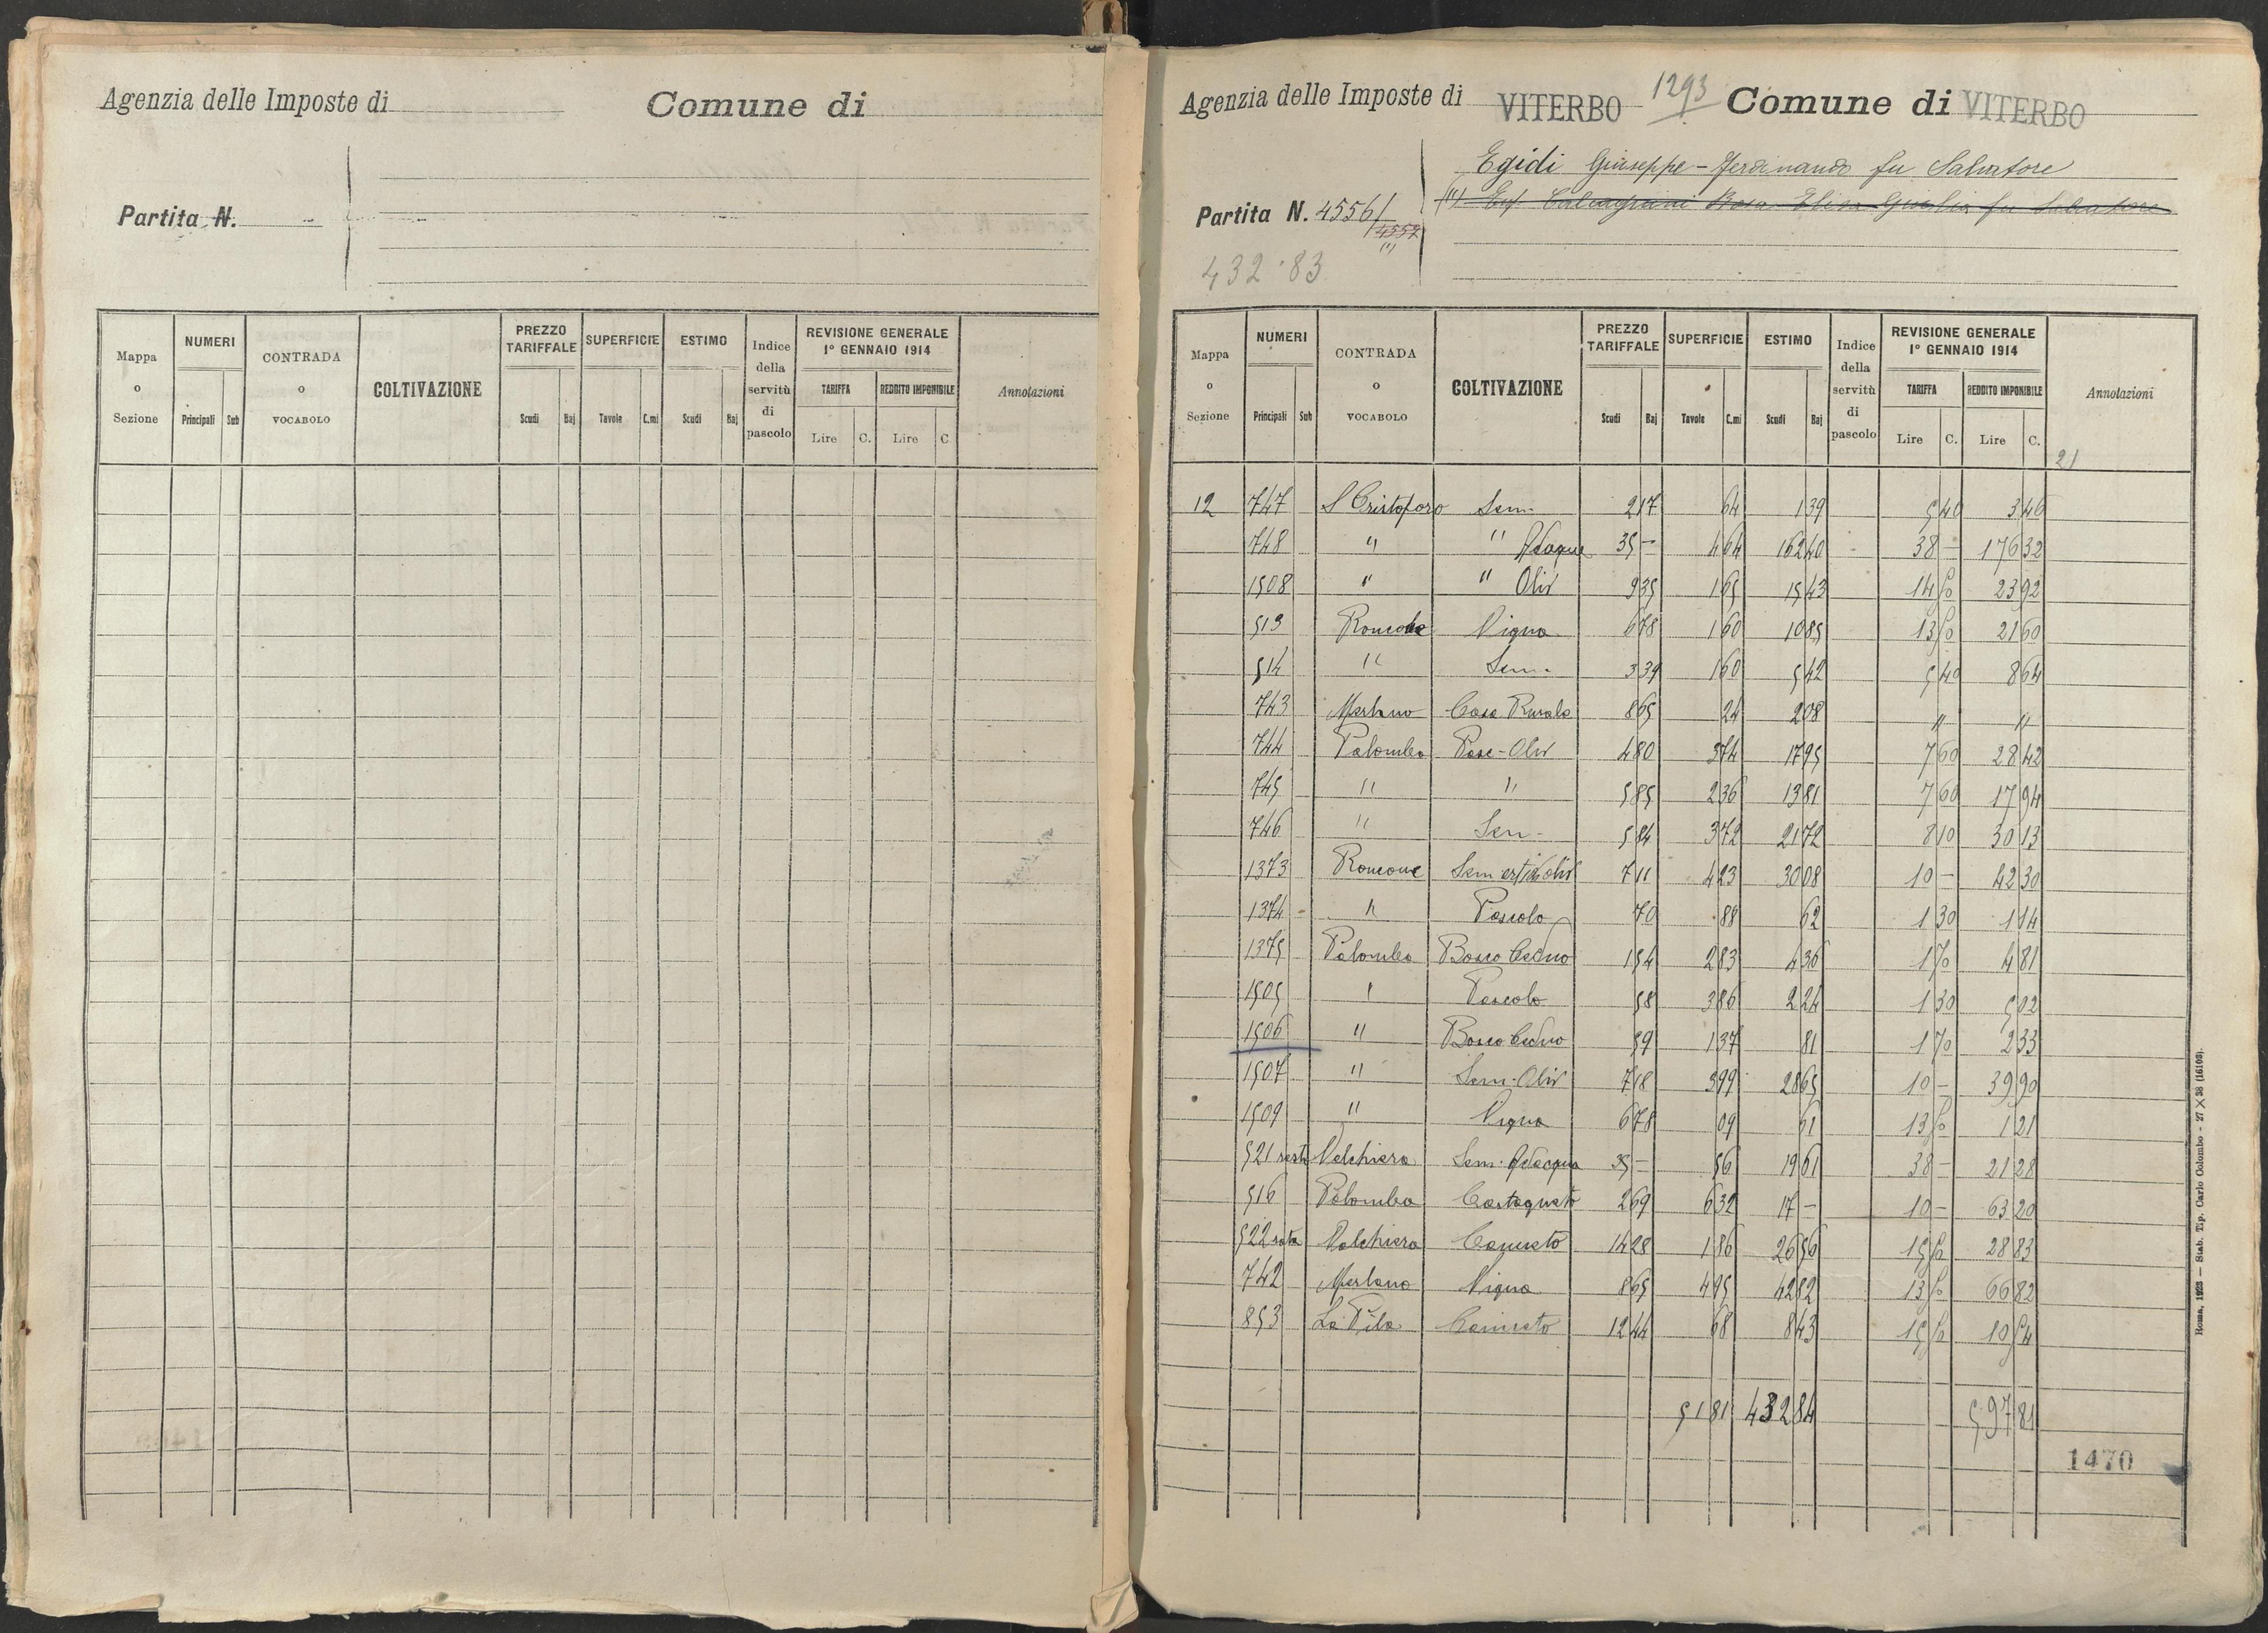 Agenzia delle Imposte di Comune di
Partita N.
Mappa o Sezione NUMERI Principali Sub CONTRADA o VOCABOLO COLTIVAZIONE PREZZO TARIFFALE Scudi Baj SUPERFICIE Tavole C.mi ESTIMO Scudi Baj Indice della servitù di pascolo REVISIONE GENERALE 1° GENNAIO 1914 TARIFFA Lire C. REDDITO IMPONIBILE Lire C. Annotazioni
Agenzia delle Imposte di VITERBO 1293 Comune di VITERBO
Egidi Giuseppe - Ferdinando fu Salvatore
Partita N. 4556/
4557
432.83
Mappa o Sezione NUMERI Principali Sub CONTRADA o VOCABOLO COLTIVAZIONE PREZZO TARIFFALE Scudi Baj SUPERFICIE Tavole C.mi ESTIMO Scudi Baj Indice della servitù di pascolo REVISIONE GENERALE 1° GENNAIO 1914 TARIFFA Lire C. REDDITO IMPONIBILE Lire C. Annotazioni
21
12 747 S Cristoforo Sem. 2 17 64 1 39 5 40 3 46
748 " " Adaque 35 — 4 64 162 40 38 — 176 32
1508 " " Oliv 9 35 1 65 15 43 14 50 23 92
513 Vigna 6 78 1 60 10 85 13 50 21 60
514 " Sem. 3 39 1 60 5 42 5 40 8 64
743 Merlano Casa Rurale 8 65 24 2 08 " "
744 Palomba Pasc-Oliv 4 80 3 74 17 95 7 60 28 42
745 " " 5 85 2 36 13 81 7 60 17 94
746 " Sem. 5 84 3 72 21 72 8 10 30 13
1373 Roncone Sem 7 11 4 23 30 08 10 — 42 30
1374 " Pascolo 70 88 62 1 30 1 14
1375 Palomba Bosco Ceduo 1 54 2 83 4 36 1 70 4 81
1505 " Pascolo 58 3 86 2 24 1 30 5 02
1506 " Bosco Ceduo 59 1 37 81 1 70 2 33
1507 " Sem. Oliv 7 18 3 99 28 65 10 — 39 90
1509 " Vigna 6 78 09 61 13 50 1 21
521 resta Valchiera Sem. Adacqua 35 — 56 19 61 38 — 21 28
516 Palomba Castagneto 2 69 6 32 17 — 10 — 63 20
522 rata Valchiera Canneto 14 28 1 86 26 56 15 50 28 83
742 Merlano Vigna 8 65 4 95 42 82 13 50 66 82
853 La Pila Canneto 12 44 68 8 43 15 50 10 54
51 81 432 84 597 81
1470
Roma, 1923 — Stab. Tip. Carlo Colombo - 27 X 38 (16103).